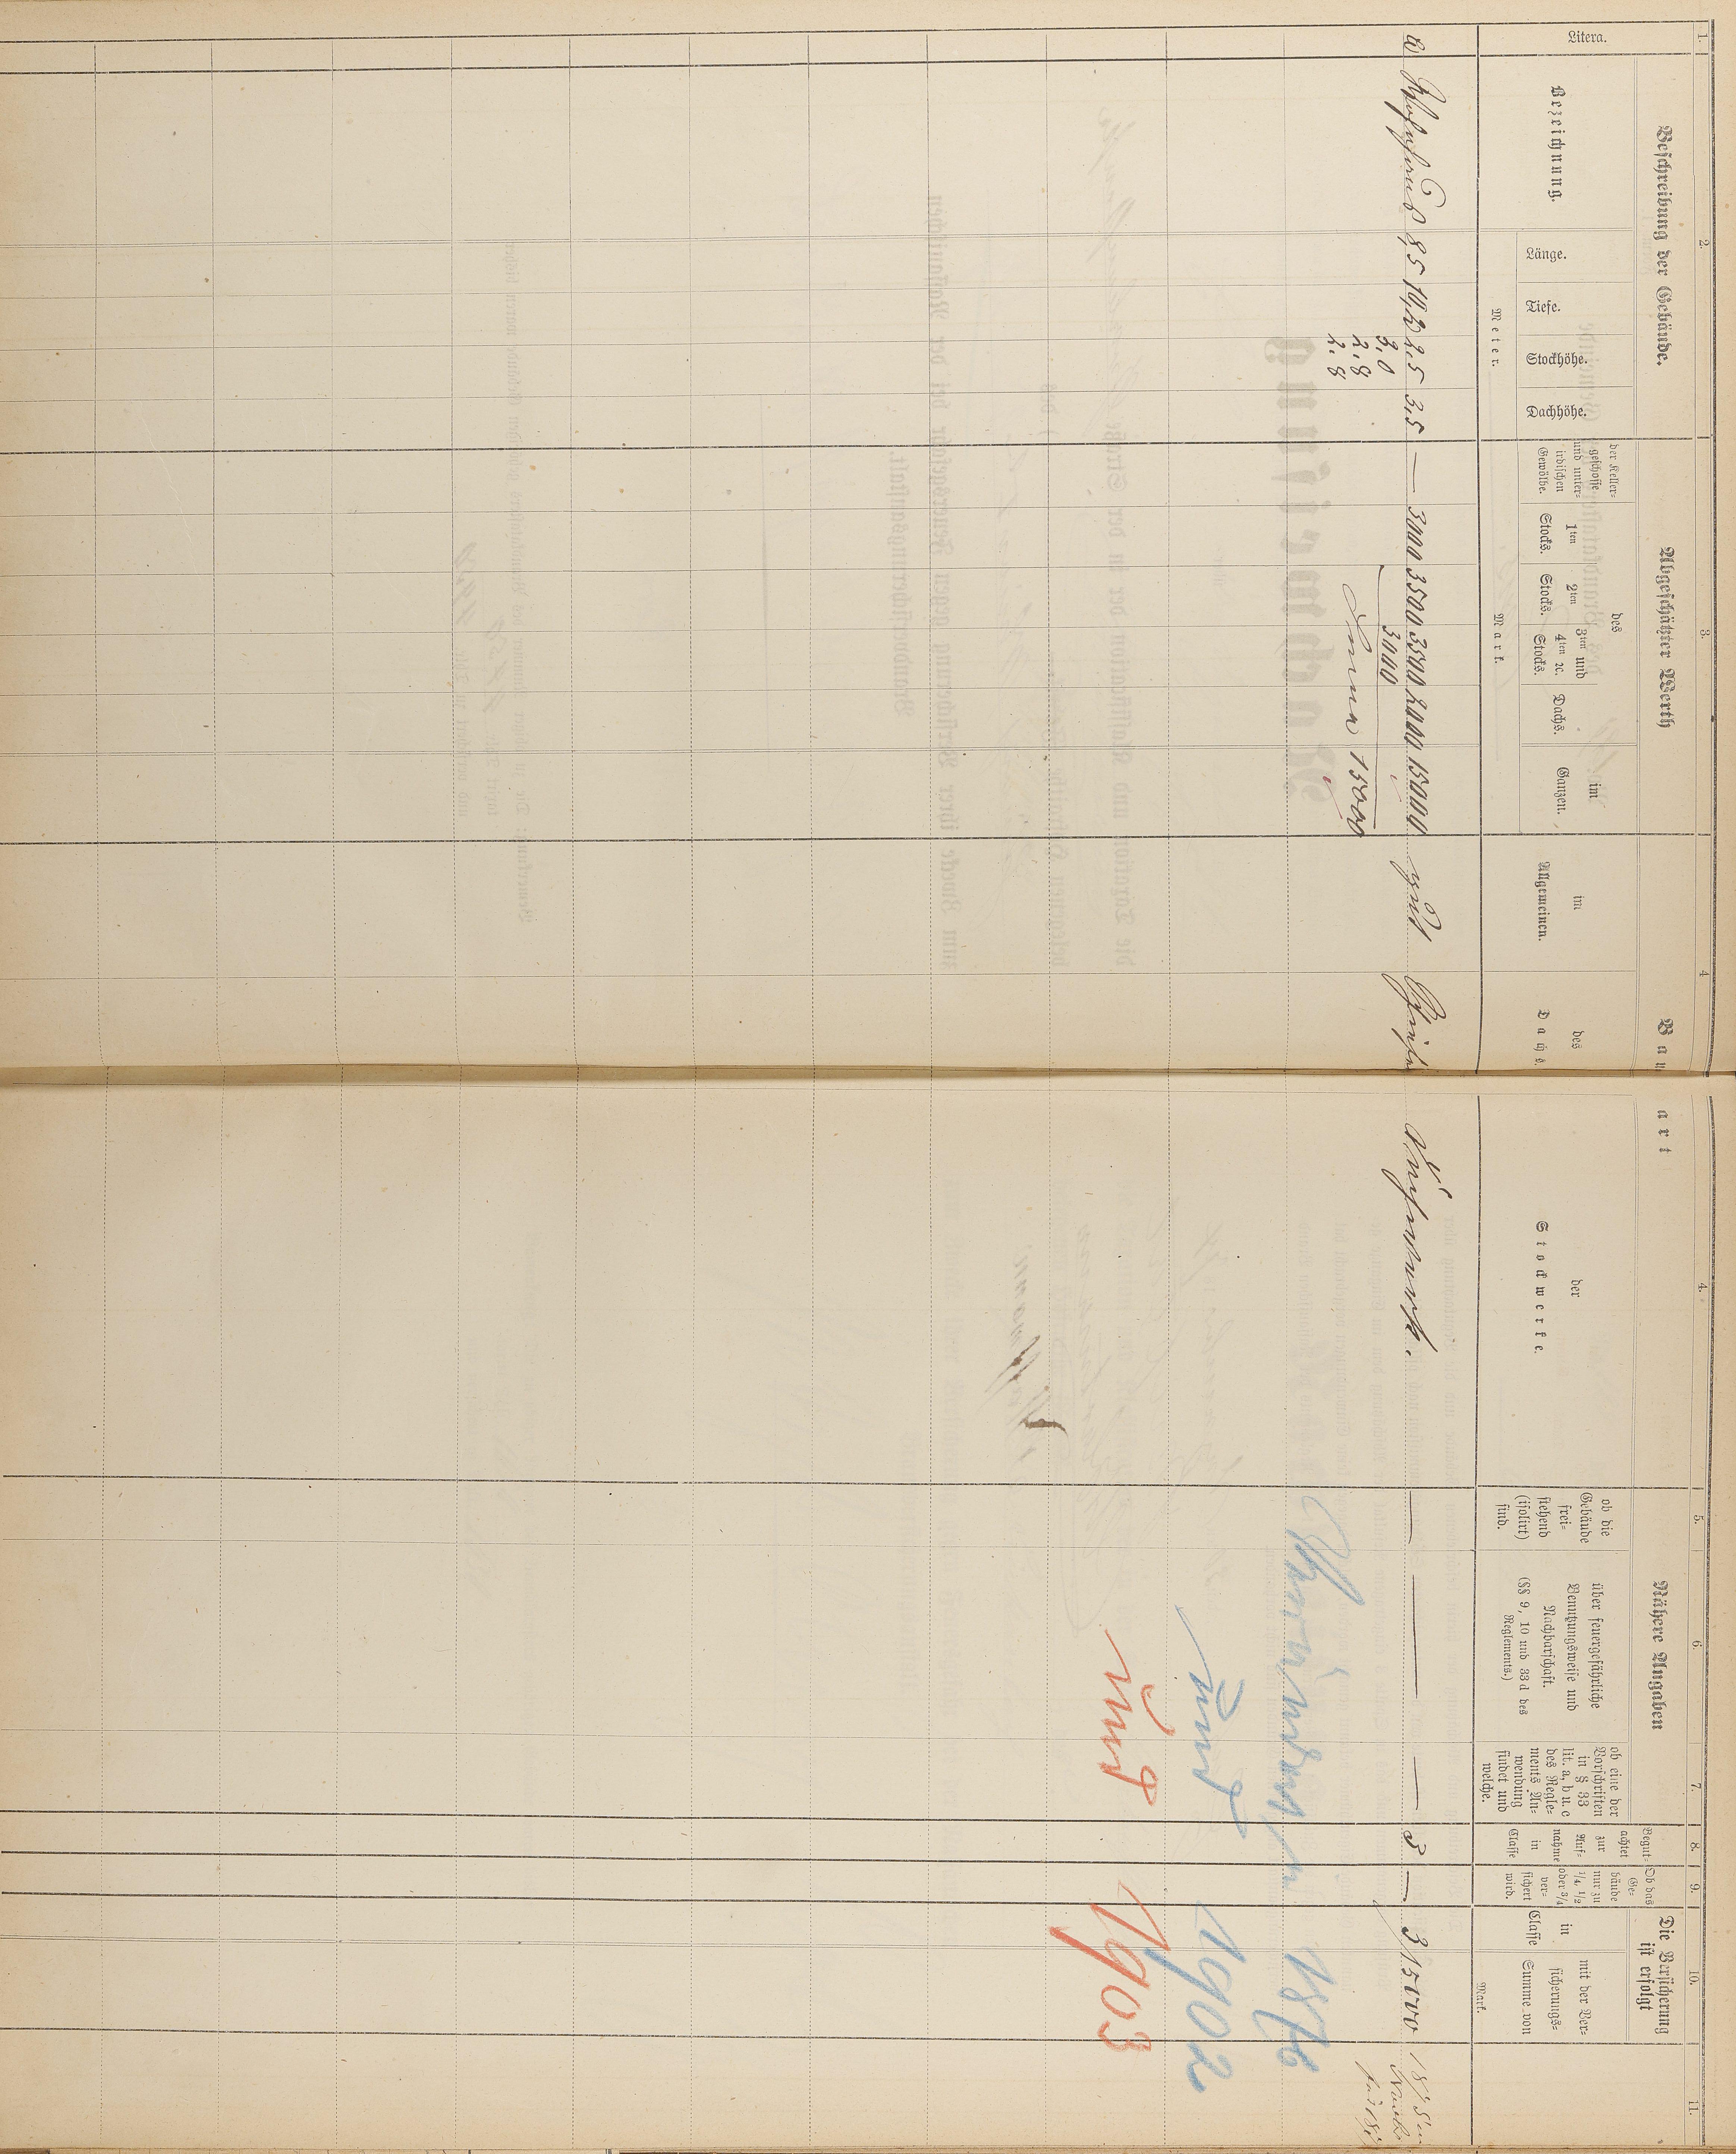 1. 2. 3. 4 4. 5. 6. 7. 8. 9. 10. 11.
Litera.
Beschreibung der Gebäude.
Bezeichnung.
Länge.
Tiefe.
Stockhöhe.
Dachhöhe.
Meter.
Abgeschätzter Werth
des
der Keller-
geschosse
und unter-
irdischen
Gewölbe.
1ten
Stocks.
2ten
Stocks.
3ten und
4ten ꝛc.
Stocks.
Dachs.
im
Ganzen.
Mark.
Bau
art
im
Allgemeinen.
des
Dachs.
der
Stockwerke.
Nähere Angaben
ob die
Gebäude
frei-
stehend
(isolirt)
sind.
über feuergefährliche
Benutzungsweise und
Nachbarschaft.
(§§ 9, 10 und 33 d des
Reglements.)
ob eine der
Vorschriften
in § 33
lit. a, b u. c
des Regle-
ments An-
wendung
findet und
welche.
Begut-
achtet
zur
Auf-
nahme
in
Classe
Ob das
Ge-
bäude
nur zu
1/4, 1/2
oder 3/4
ver-
sichert
wird.
Die Versicherung
ist erfolgt
in
Classe
mit der Ver-
sicherungs-
Summe von
Mark.
a Wohnhaus 8,5 10,2 2.5 3,5 — 3000 3500 3500 2000 15000 gut Schiefer Fachwerk. — — — 3 — 3 15000
3.0 3000
2.8 Summa 15000
2.8
Unverändert 1876
und 1902
und 1903